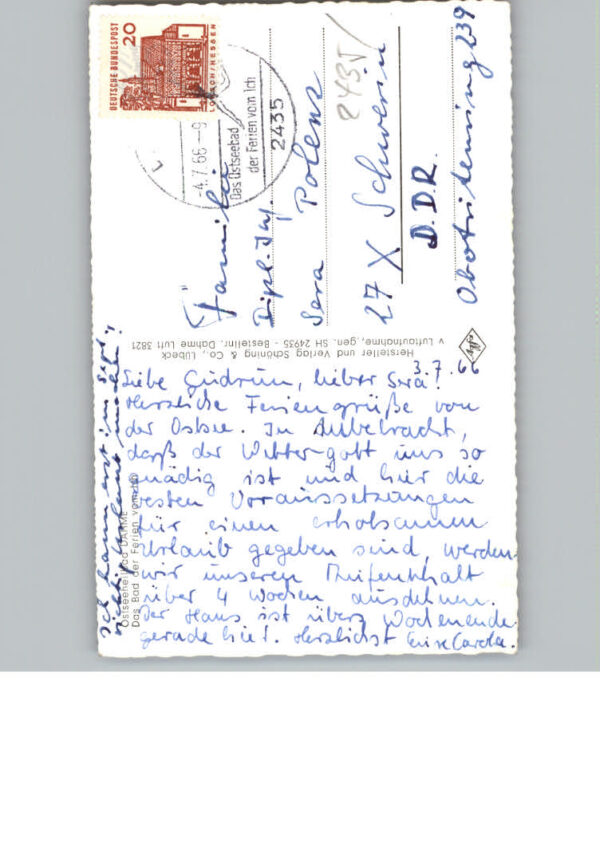 DEUTSCHE BUNDESPOST
20
LORSCH/HESSEN
-4.7.66-9
Das Ostseebad
der Ferien vom Ich
2435
Familie
Dipl.-Ing.
Sera Polenz
27 X Schwerin
D.D.R.
Obotritenring 239
2435
Hersteller und Verlag Schöning & Co., Lübeck
v Luftaufnahme, gen. SH 24935 - Bestellnr. Dahme Luft 3821
Ostseeheilbad DAHME
Das Bad der Ferien vom Ich
3.7.66
Liebe Gudrun, lieber Sera!
Herzliche Feriengrüße von
der Ostsee. In Anbetracht,
daß der Wettergott uns so
gnädig ist und hier die
besten Voraussetzungen
für einen erholsamen
Urlaub gegeben sind, werden
wir unseren Aufenthalt
über 4 Wochen ausdehnen.
Der Hans ist übers Wochenende
gerade hier. Herzlichst Eure Carola.
Ich kann erst im Sept.